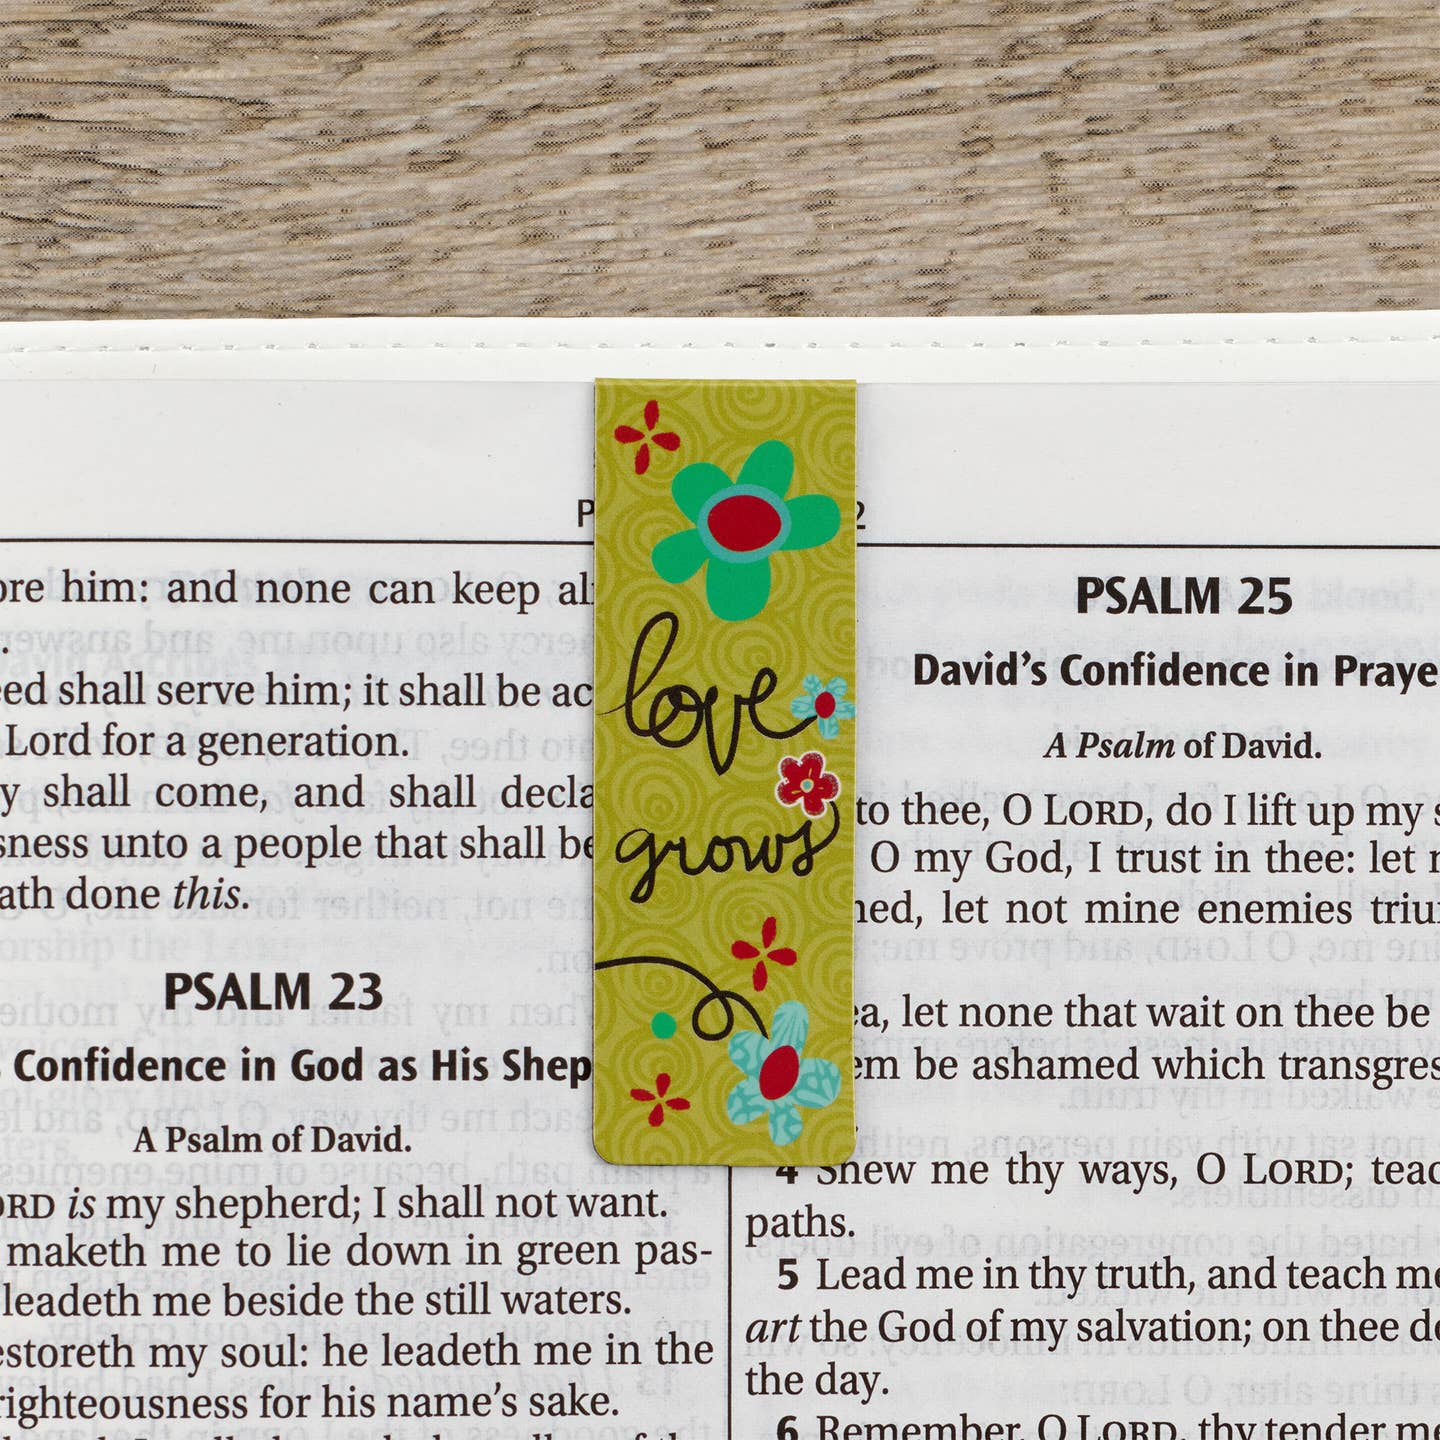 ore him: and none can keep
.
eed shall serve him; it shall be
Lord for a generation.
y shall come, and shall
sness unto a people that shall
ath done this.
PSALM 23
Confidence in God as His
A Psalm of David.
ORD is my shepherd; I shall not want.
maketh me to lie down in green pas-
leadeth me beside the still waters.
estoreth my soul: he leadeth me in the
righteousness for his name's sake.
love
grows
PSALM 25
David's Confidence in
A Psalm of David.
to thee, O LORD, do I lift up my
O my God, I trust in thee: let
let not mine enemies
let none that wait on thee be
be ashamed which
4 Shew me thy ways, O LORD;
paths.
5 Lead me in thy truth, and teach
art the God of my salvation; on thee
the day.
6 Remember, O LORD, thy tender